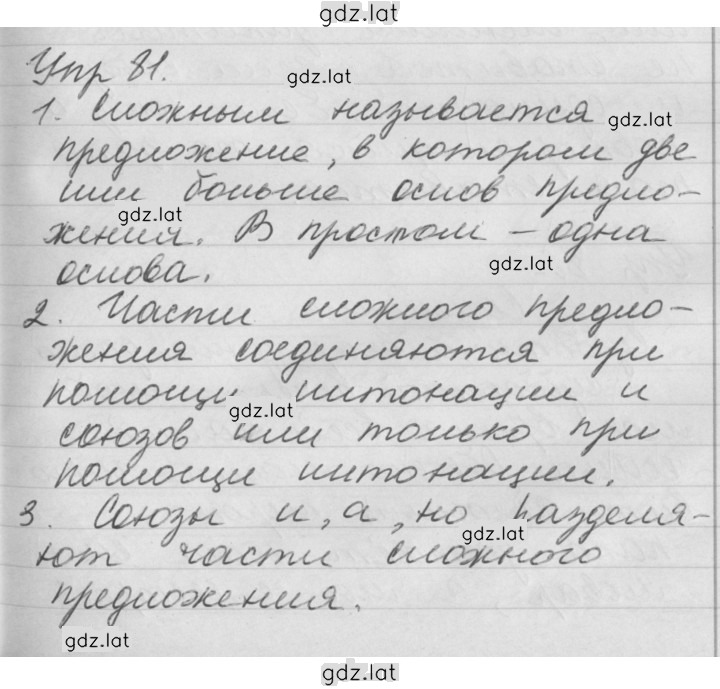 gdz.lat
Упр 81.
gdz.lat
1. Сложным называется
gdz.lat
предложение, в котором две
или больше основ предло-
gdz.lat
жения. В простом – одна
gdz.lat
основа.
2. Части сложного предло-
жения соединяются при
помощи интонации и
gdz.lat
союзов или только при
помощи интонации.
3. Союзы и, а, но разделя-
gdz.lat
ют части сложного
предложения.
gdz.lat
gdz.lat